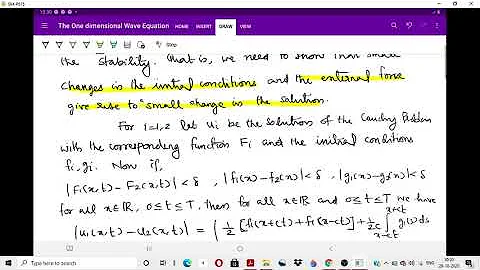 The One dimensional Wave Equation
HOME INSERT DRAW VIEW
the stability. That is, we need to show that small
changes in the initial conditions and the external force
give rise to small change in the solution.
For i=1,2 let ui be the solution of the Cauchy Problem
with the corresponding function Fi and the initial conditions
fi, gi. Now if,
|F1(x,t)-F2(x,t)|<δ, |f1(x)-f2(x)|<δ, |g1(x)-g2(x)|<δ
for all x∈ℝ, 0≤t≤T, then for all x∈ℝ and 0≤t≤T we have
|u1(x,t)-u2(x,t)| = | 1/2 [f1(x+ct)+f1(x-ct)] + 1/2c ∫x-ct x+ct g1(s)ds
Type here to search